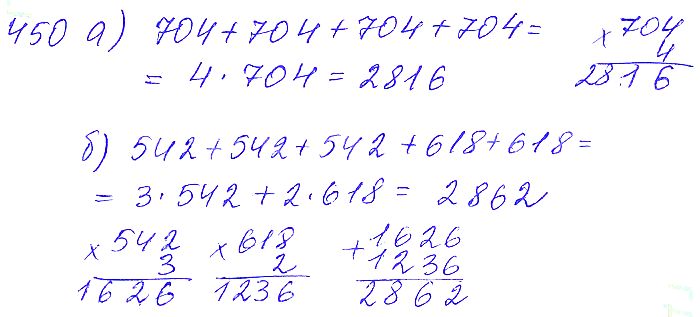 450 а) 704 + 704 + 704 + 704 =
= 4 · 704 = 2816
× 704
4
2816
б) 542 + 542 + 542 + 618 + 618 =
= 3 · 542 + 2 · 618 = 2862
× 542
3
1626
× 618
2
1236
+ 1626
1236
2862